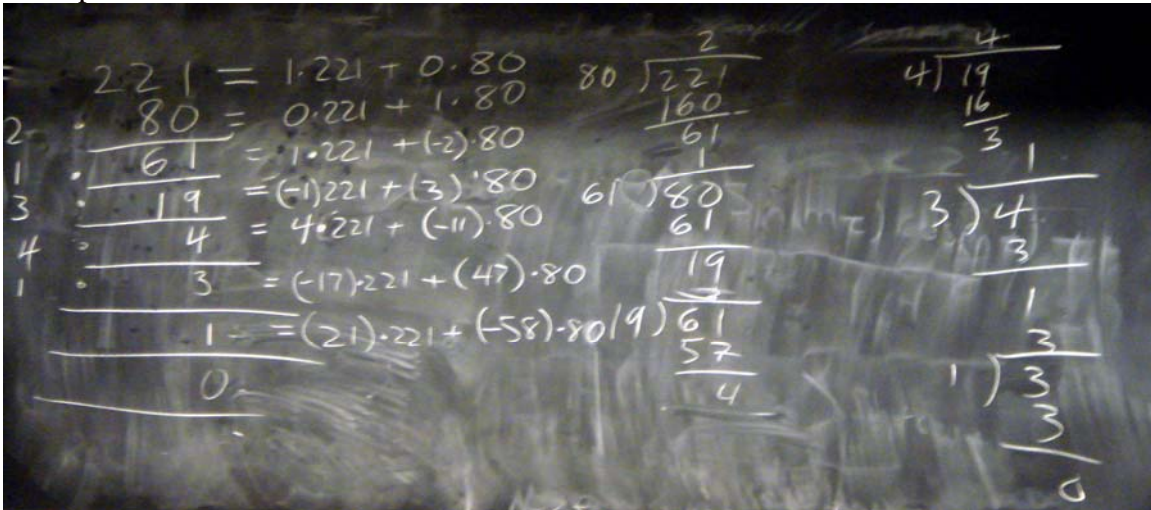 221 = 1·221 + 0·80
2 · 80 = 0·221 + 1·80
1 · 61 = 1·221 + (-2)·80
3 · 19 = (-1)221 + (3)·80
4 · 4 = 4·221 + (-11)·80
1 · 3 = (-17)·221 + (47)·80
1 = (21)·221 + (-58)·80
0
2
80)221
160
61
1
61)80
61
19
19)61
57
4
4
4)19
16
3
1
3)4
3
1
3
1)3
3
0